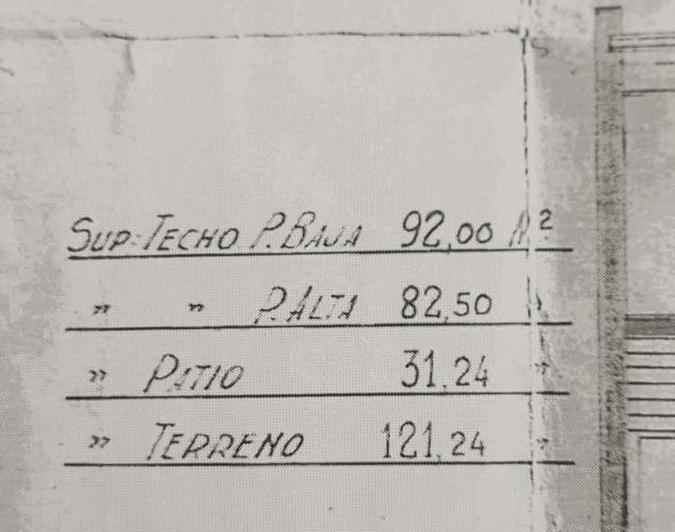 SUP. TECHO P. BAJA 92,00 M²
" " P. ALTA 82,50 "
" PATIO 31,24 "
" TERRENO 121,24 "